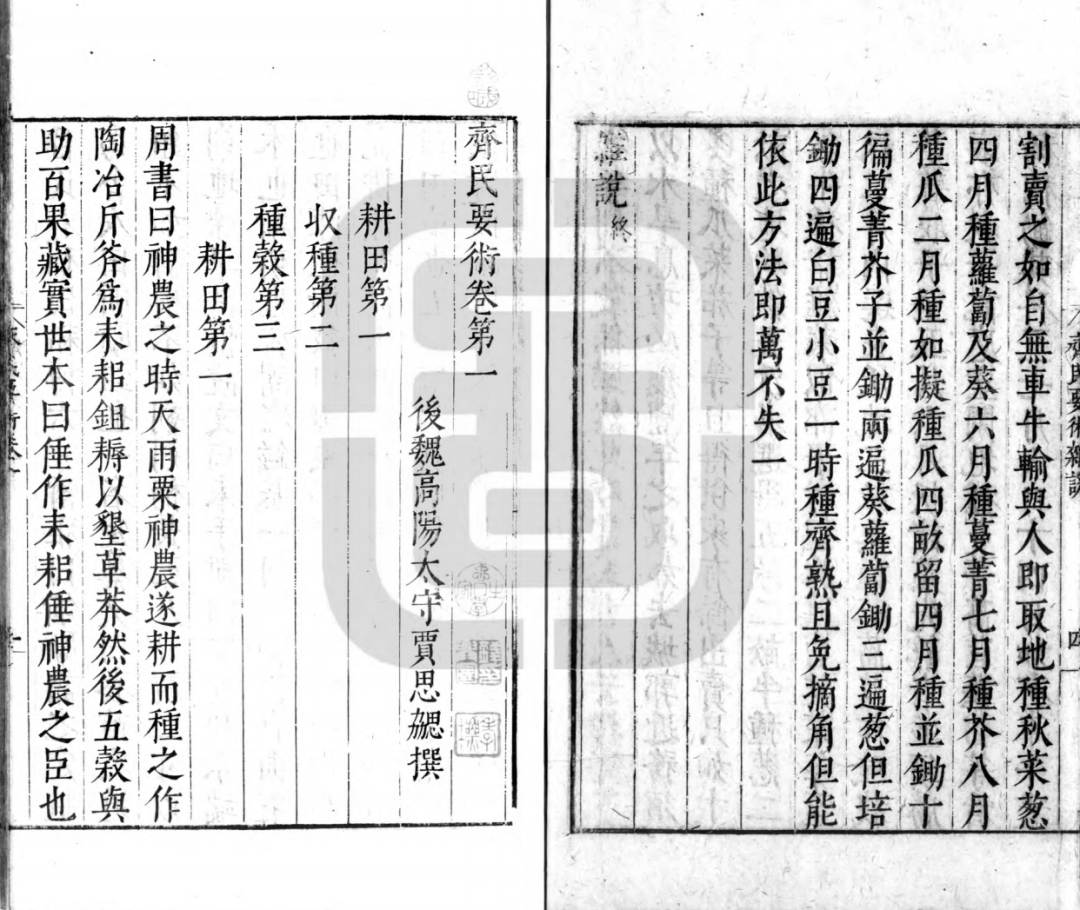 割賣之如自無車牛輸與人即取地種秋菜葱
四月種蘿蔔及葵六月種蔓菁七月種芥八月
種瓜二月種如擬種瓜四畝留四月種並鋤十
徧蔓菁芥子並鋤兩遍葵蘿蔔鋤三遍葱但培
鋤四遍白豆小豆一時種齊熟且免摘角但能
依此方法即萬不失一
雜說終
齊民要術卷第一
後魏高陽太守賈思勰撰
耕田第一
収種第二
種穀第三
耕田第一
周書曰神農之時天雨粟神農遂耕而種之作
陶冶斤斧爲耒耜鉏耨以墾草莽然後五穀與
助百果藏實世本曰倕作耒耜倕神農之臣也